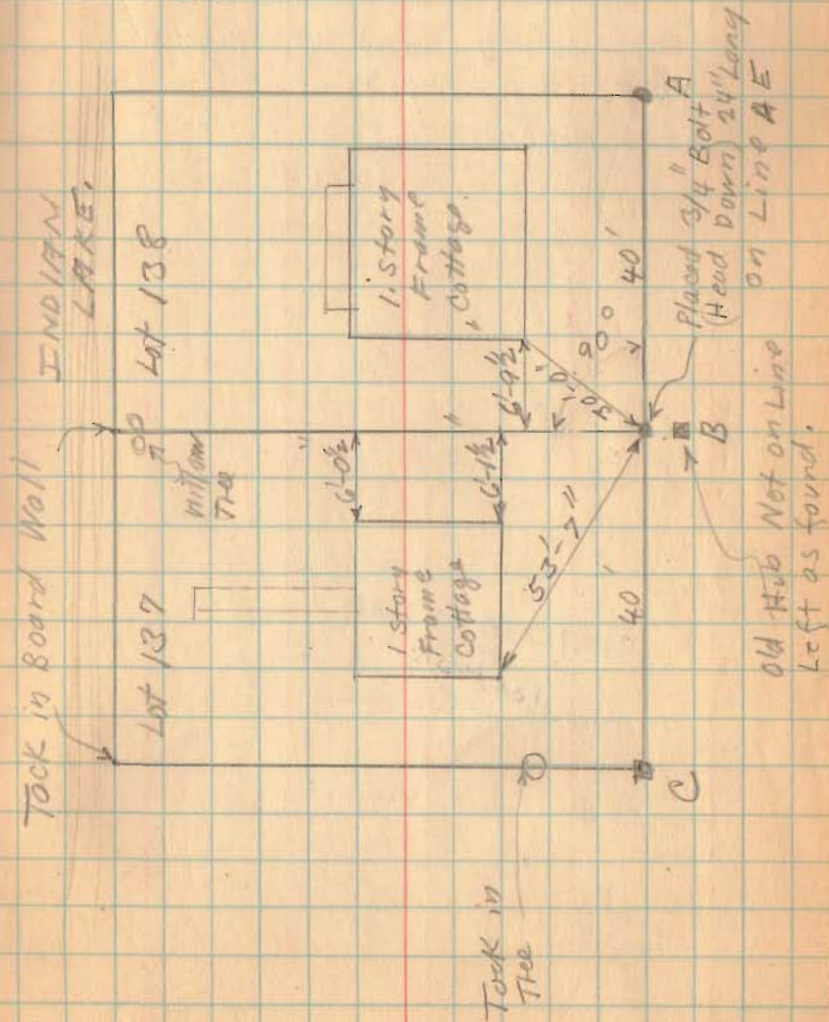 Tack in Board Wall
INDIAN
LAKE.
Lot 137
Lot 138
Willow
Tree
1 Story
Frame
Cottage
1. Story
Frame
Cottage.
6'-0½"
6'-1½"
6'-9½"
53'-7"
40'
40'
Tack in
Tree
C
B
A
Placed 3/4" Bolt
(Head Down) 24" Long
on Line AE
Old Hub Not on Line
Left as found.